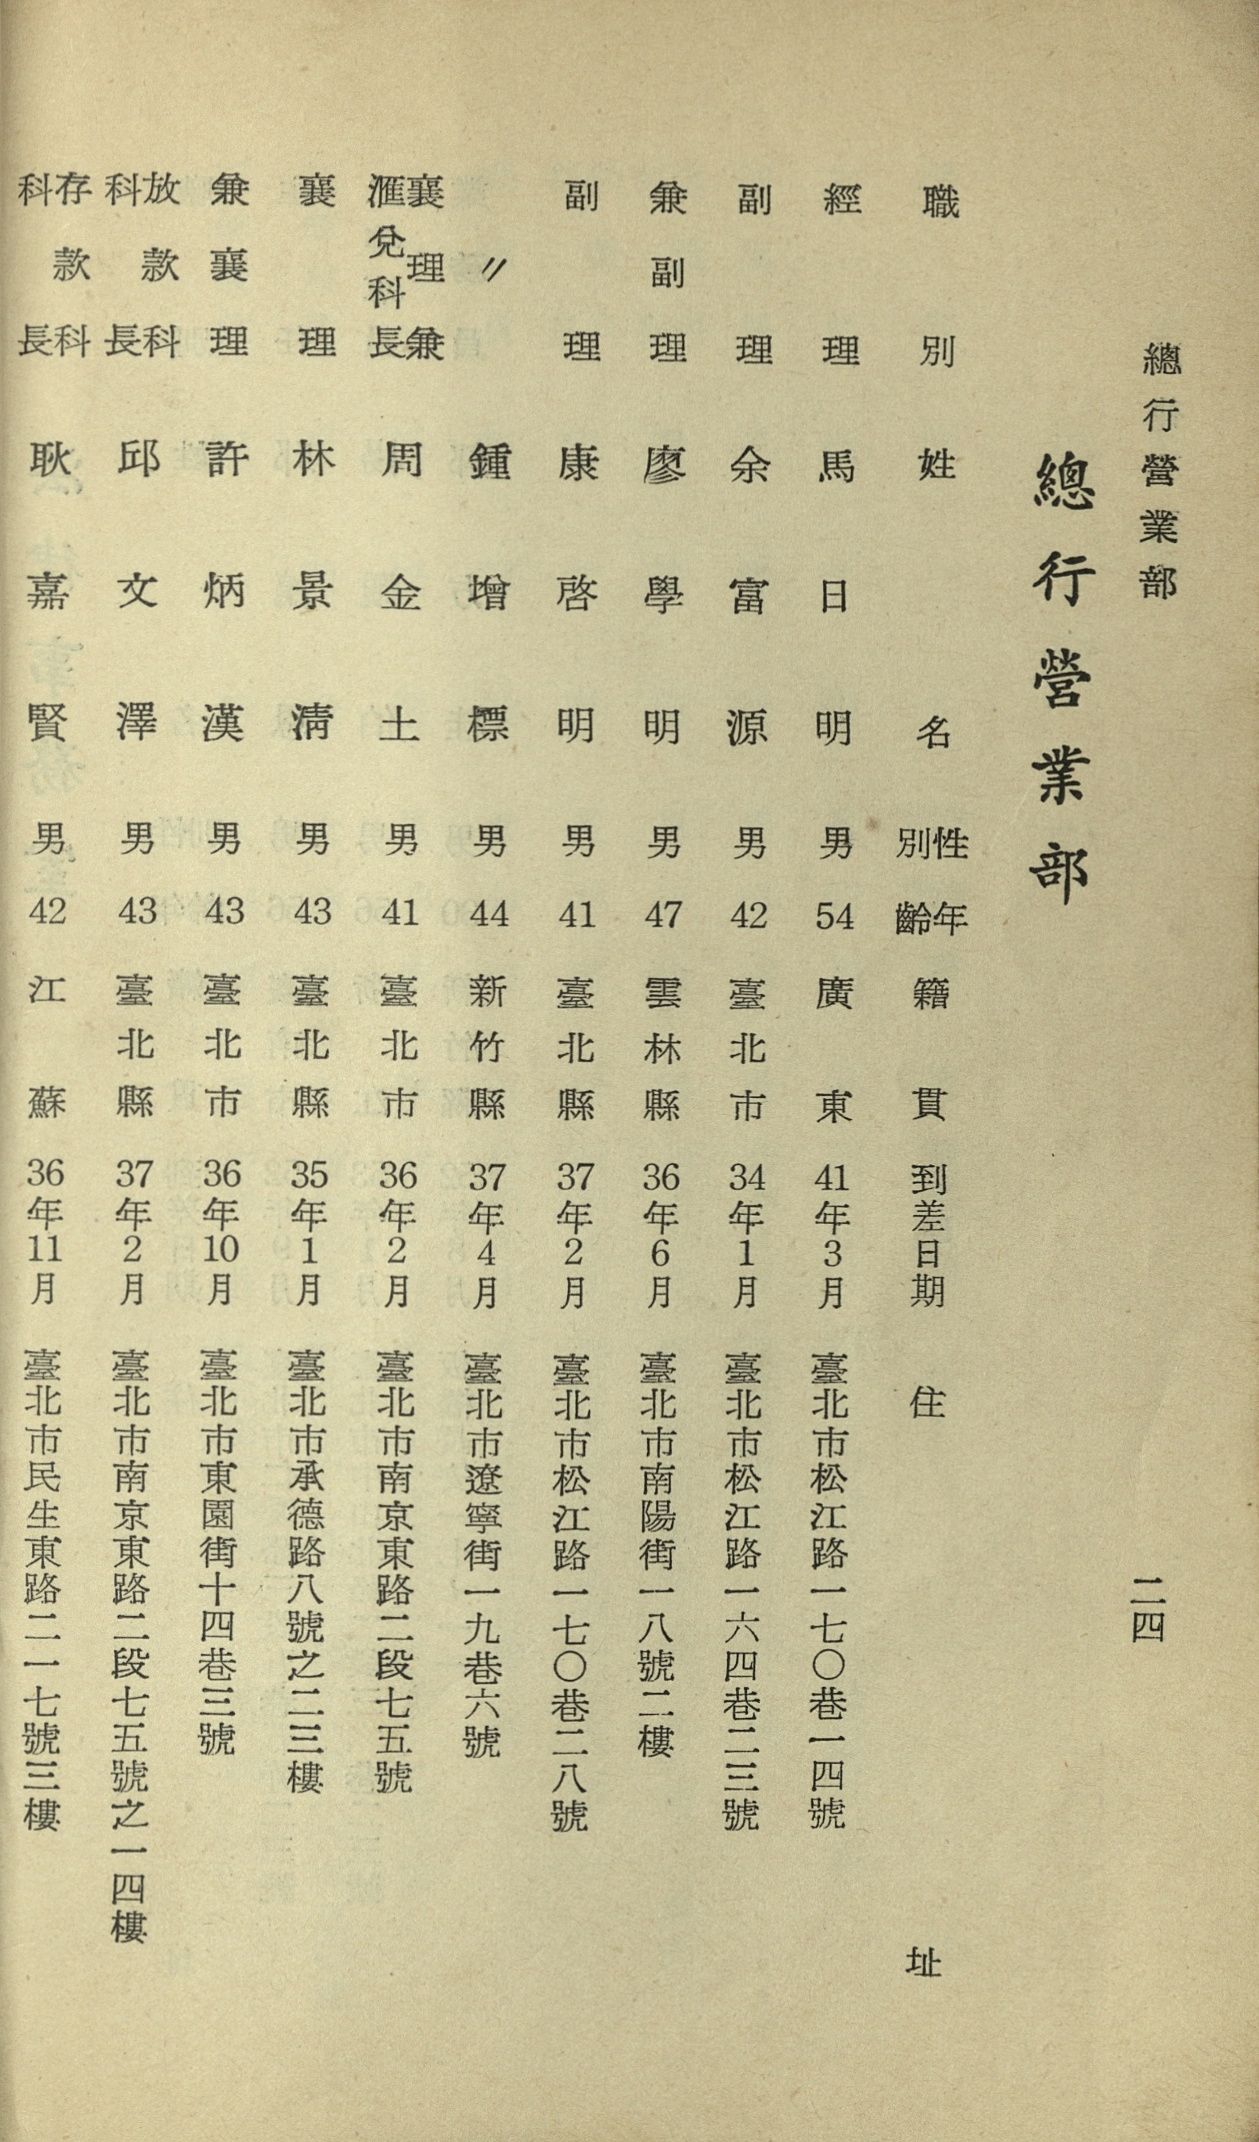 總行營業部
二四
總行營業部
職別 姓名 性別 年齡 籍貫 到差日期 住址
經理 馬日明 男 54 廣東 41年3月 臺北市松江路一七〇巷一四號
副理 余富源 男 42 臺北市 34年1月 臺北市松江路一六四巷二三號
兼副理 廖學明 男 47 雲林縣 36年6月 臺北市南陽街一八號二樓
副理 康啓明 男 41 臺北縣 37年2月 臺北市松江路一七〇巷二八號
〃 鍾增標 男 44 新竹縣 37年4月 臺北市遼寧街一九巷六號
襄理兼滙兌科長 周金土 男 41 臺北市 36年2月 臺北市南京東路二段七五號
襄理 林景淸 男 43 臺北縣 35年1月 臺北市承德路八號之二三樓
兼襄理 許炳漢 男 43 臺北市 36年10月 臺北市東園街十四巷三號
放款科科長 邱文澤 男 43 臺北縣 37年2月 臺北市南京東路二段七五號之一四樓
存款科科長 耿嘉賢 男 42 江蘇 36年11月 臺北市民生東路二一七號三樓